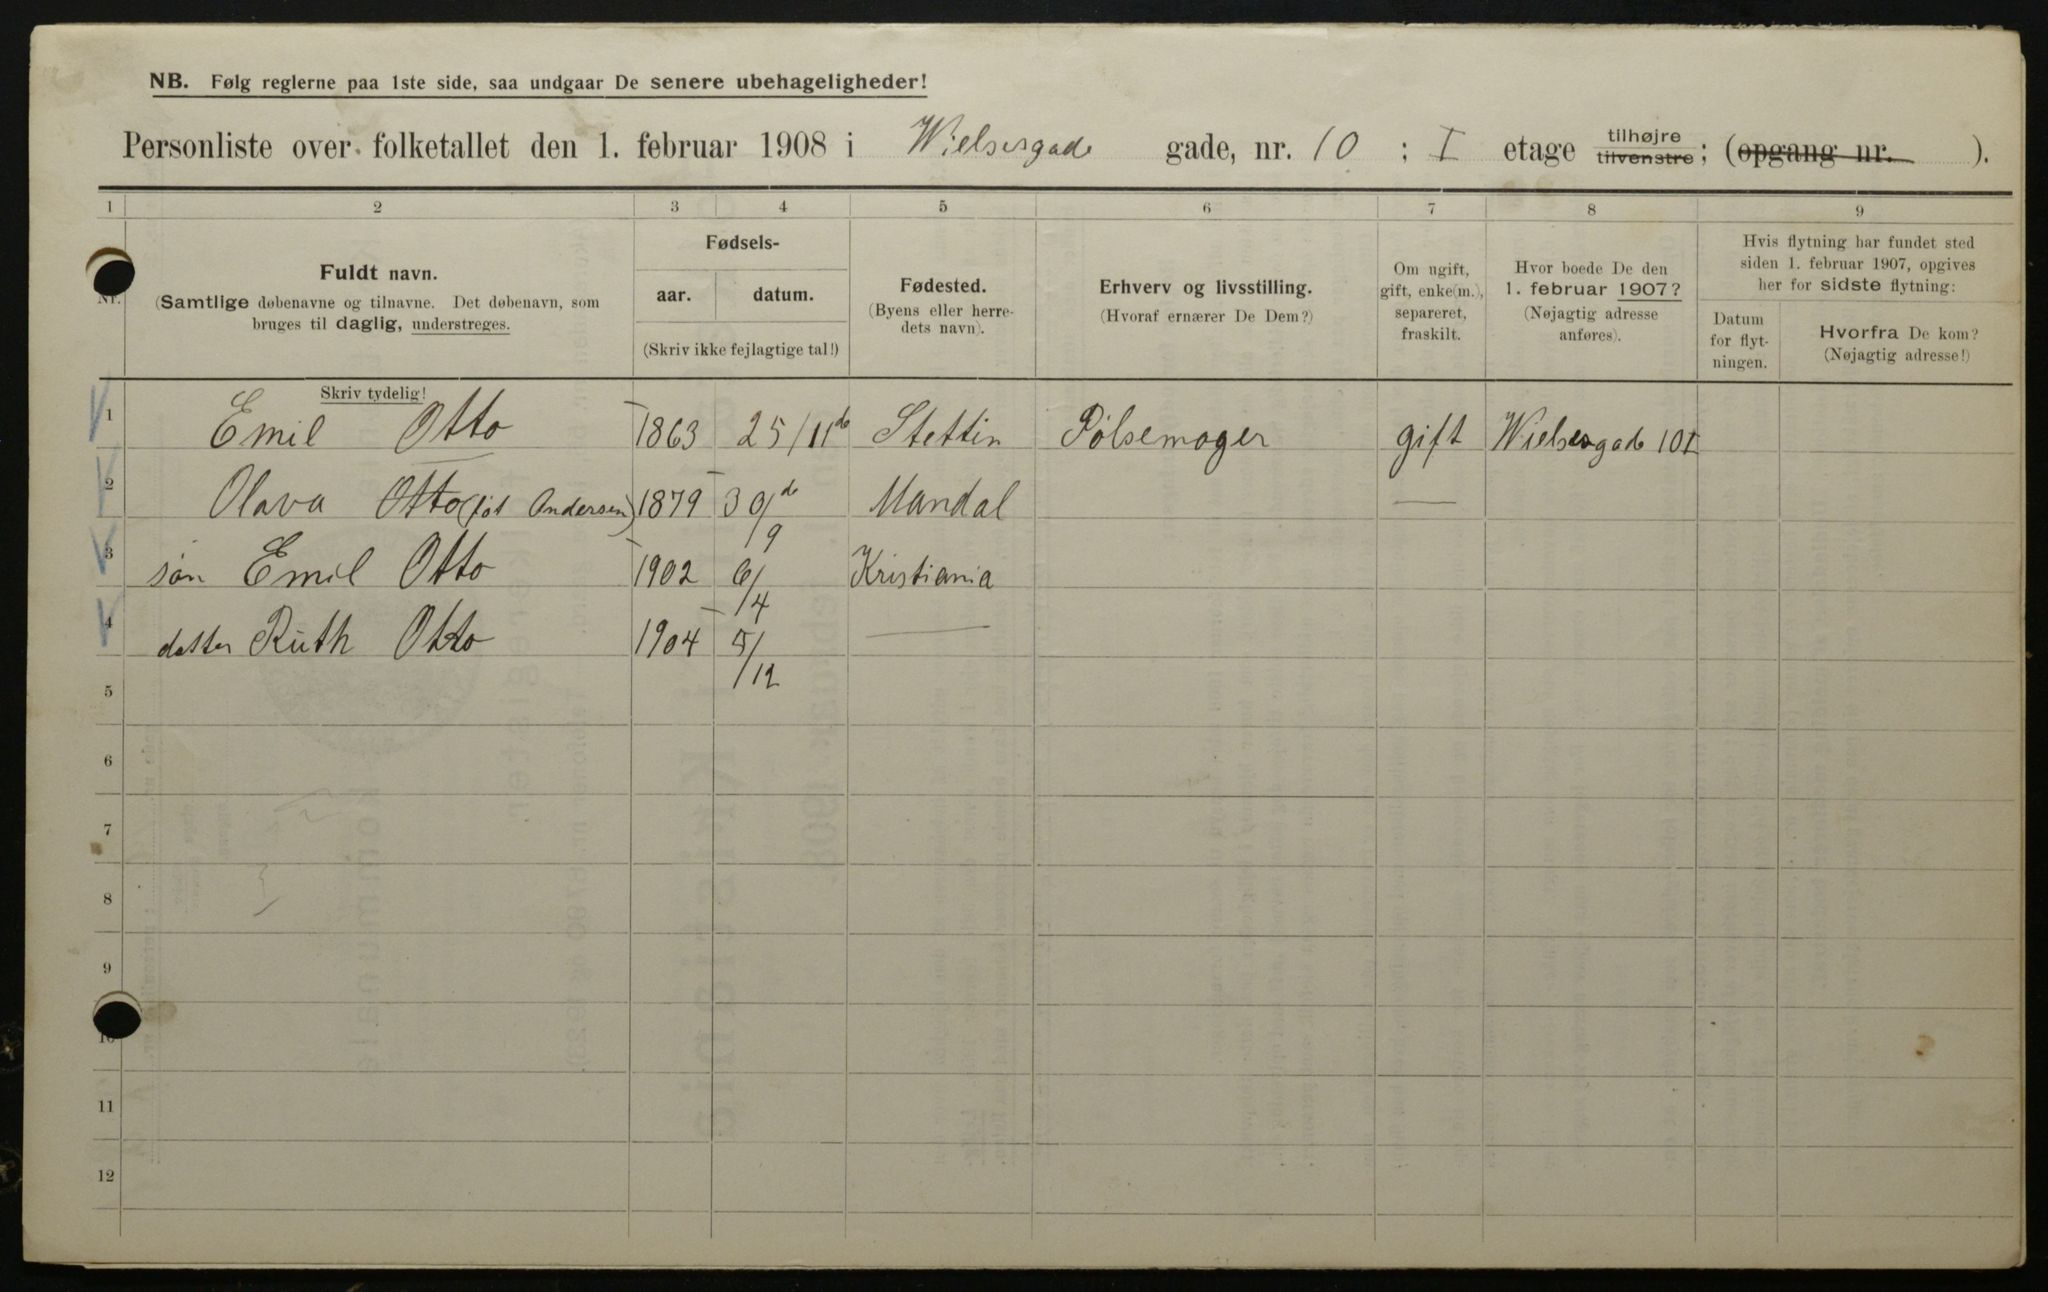 NB. Følg reglerne paa 1ste side, saa undgaar De senere ubehageligheder!
Personliste over folketallet den 1. februar 1908 i Wielsesgade gade, nr. 10 ; I etage tilhøjre tilvenstre; (opgang nr. ).
1 2 3 4 5 6 7 8 9
Nr.
Fuldt navn.
(Samtlige døbenavne og tilnavne. Det døbenavn, som
bruges til daglig, understreges.
Skriv tydelig!
Fødsels-
aar. datum.
(Skriv ikke fejlagtige tal!)
Fødested.
(Byens eller herre-
dets navn).
Erhverv og livsstilling.
(Hvoraf ernærer De Dem?)
Om ugift,
gift, enke(m.),
separeret,
fraskilt.
Hvor boede De den
1. februar 1907?
(Nøjagtig adresse
anføres).
Hvis flytning har fundet sted
siden 1. februar 1907, opgives
her for sidste flytning:
Datum
for flyt-
ningen.
Hvorfra De kom?
(Nøjagtig adresse!)
1 Emil Otto 1863 25/11de Stettin Pølsemager gift Wielsesgade 10 I
2 Olava Otto (føt Andersen) 1879 30de/9 Mandal —
3 søn Emil Otto 1902 6/4 Kristiania
4 datter Ruth Otto 1904 5/12 —
5
6
7
8
9
10
11
12